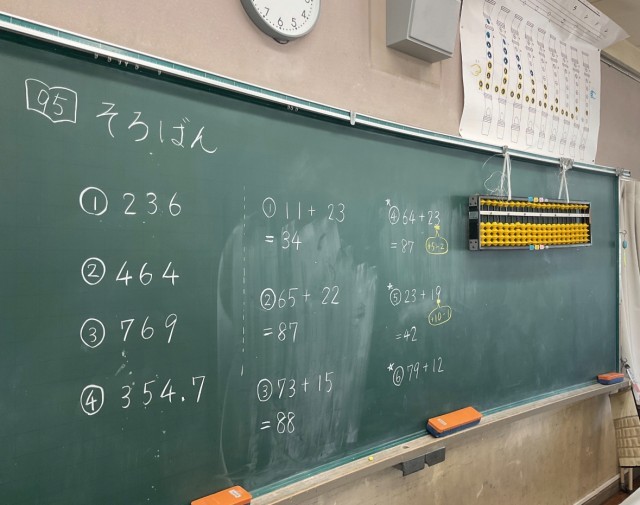 95 そろばん
① 236
② 464
③ 769
④ 354.7
① 11+23
=34
② 65+22
=87
③ 73+15
=88
*④ 64+23
=87
+5-2
*⑤ 23+19
+10-1
=42
*⑥ 79+12
7
6
5
4